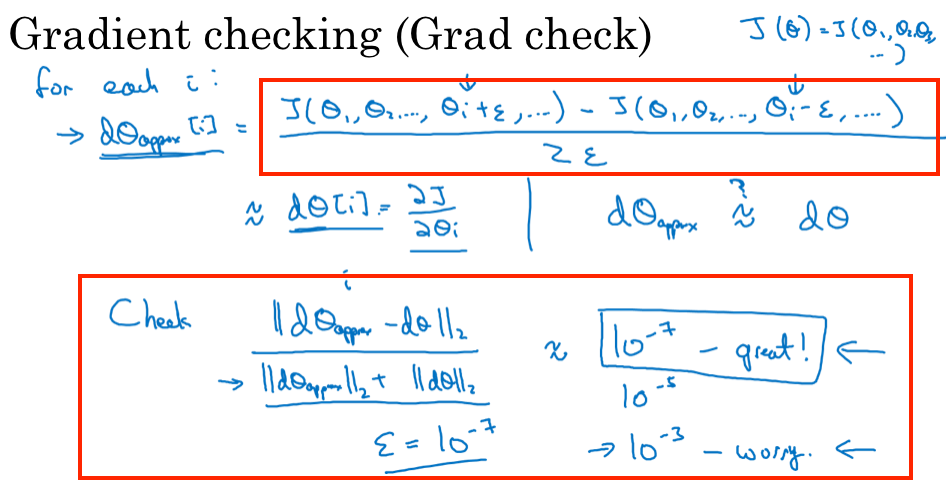 Gradient checking (Grad check)
J(θ) = J(θ₁, θ₂, θ₃, ...)
for each i:
→ dθapprox[i] = (J(θ₁, θ₂, ..., θᵢ+ε, ...) - J(θ₁, θ₂, ..., θᵢ-ε, ...)) / 2ε
≈ dθ[i] = ∂J/∂θᵢ | dθapprox ≈? dθ
Check ||dθapprox - dθ||₂ / (||dθapprox||₂ + ||dθ||₂) ≈ 10⁻⁷ - great! ←
10⁻⁵
ε = 10⁻⁷ → 10⁻³ - worry. ←